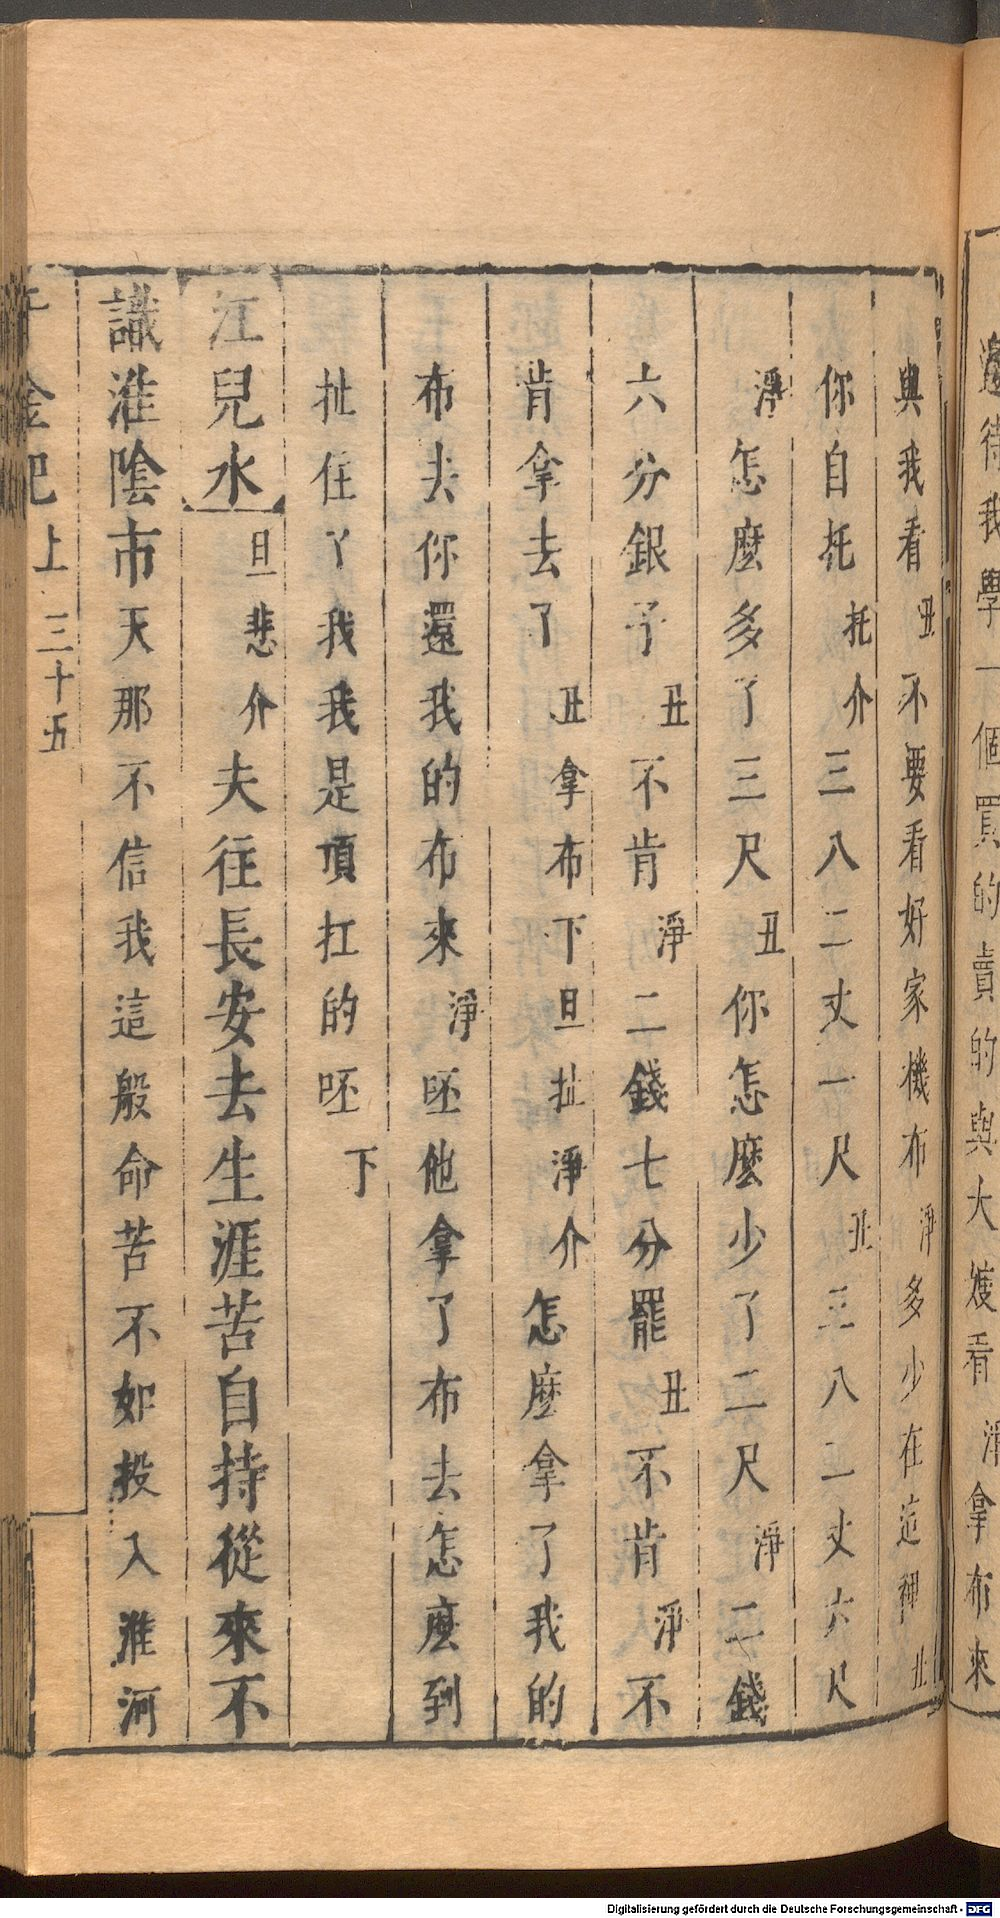 邊待我學一個買的賣的與大嫂看淨拿布來
與我看丑不要看好家機布淨多少在這裡丑
你自托托介三八二丈一尺丑三八二丈六尺
淨怎麼多了三尺丑你怎麼少了二尺淨二錢
六分銀子丑不肯淨二錢七分罷丑不肯淨不
肯拿去了丑拿布下旦扯淨介怎麼拿了我的
布去你還我的布來淨呸他拿了布去怎麼到
扯住丫我我是頂扛的呸下
江兒水旦悲介夫往長安去生涯苦自持從來不
識淮陰市天那不信我這般命苦不如投入淮河
千金記上三十五
Digitalisierung gefördert durch die Deutsche Forschungsgemeinschaft - DFG